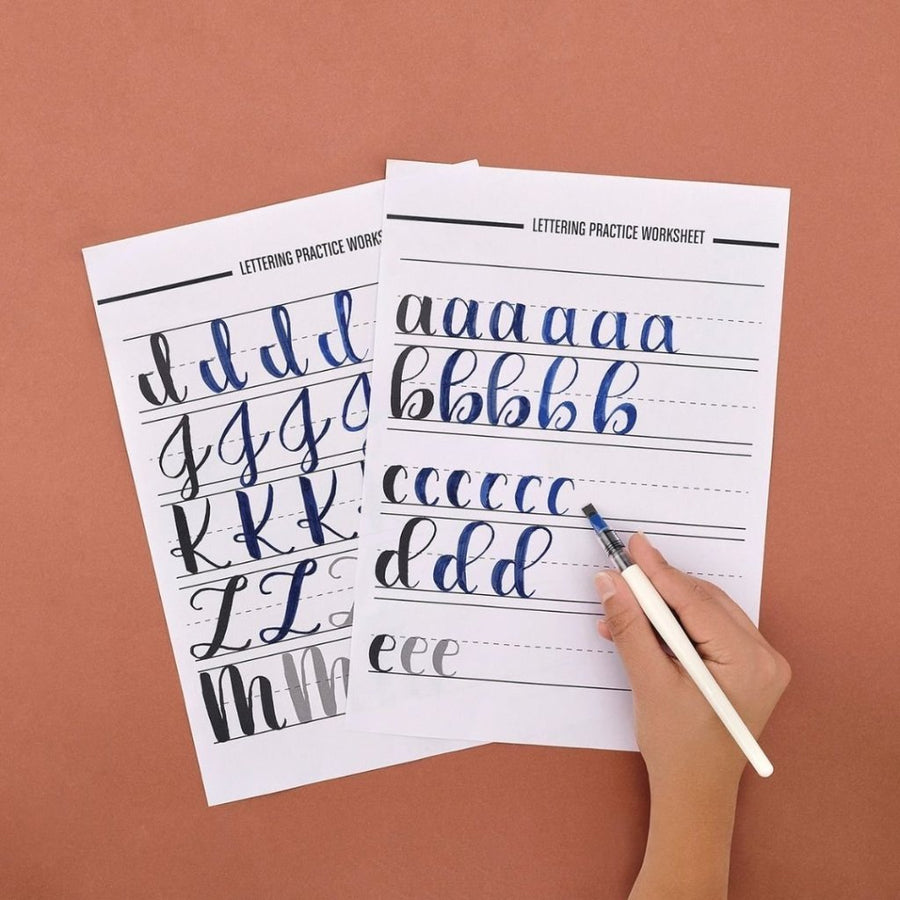 LETTERING PRACTICE WORKS
d d d d
J J J
K K K
L L
m m
LETTERING PRACTICE WORKSHEET
a a a a a a
b b b b b
c c c c c c
d d d
e e e